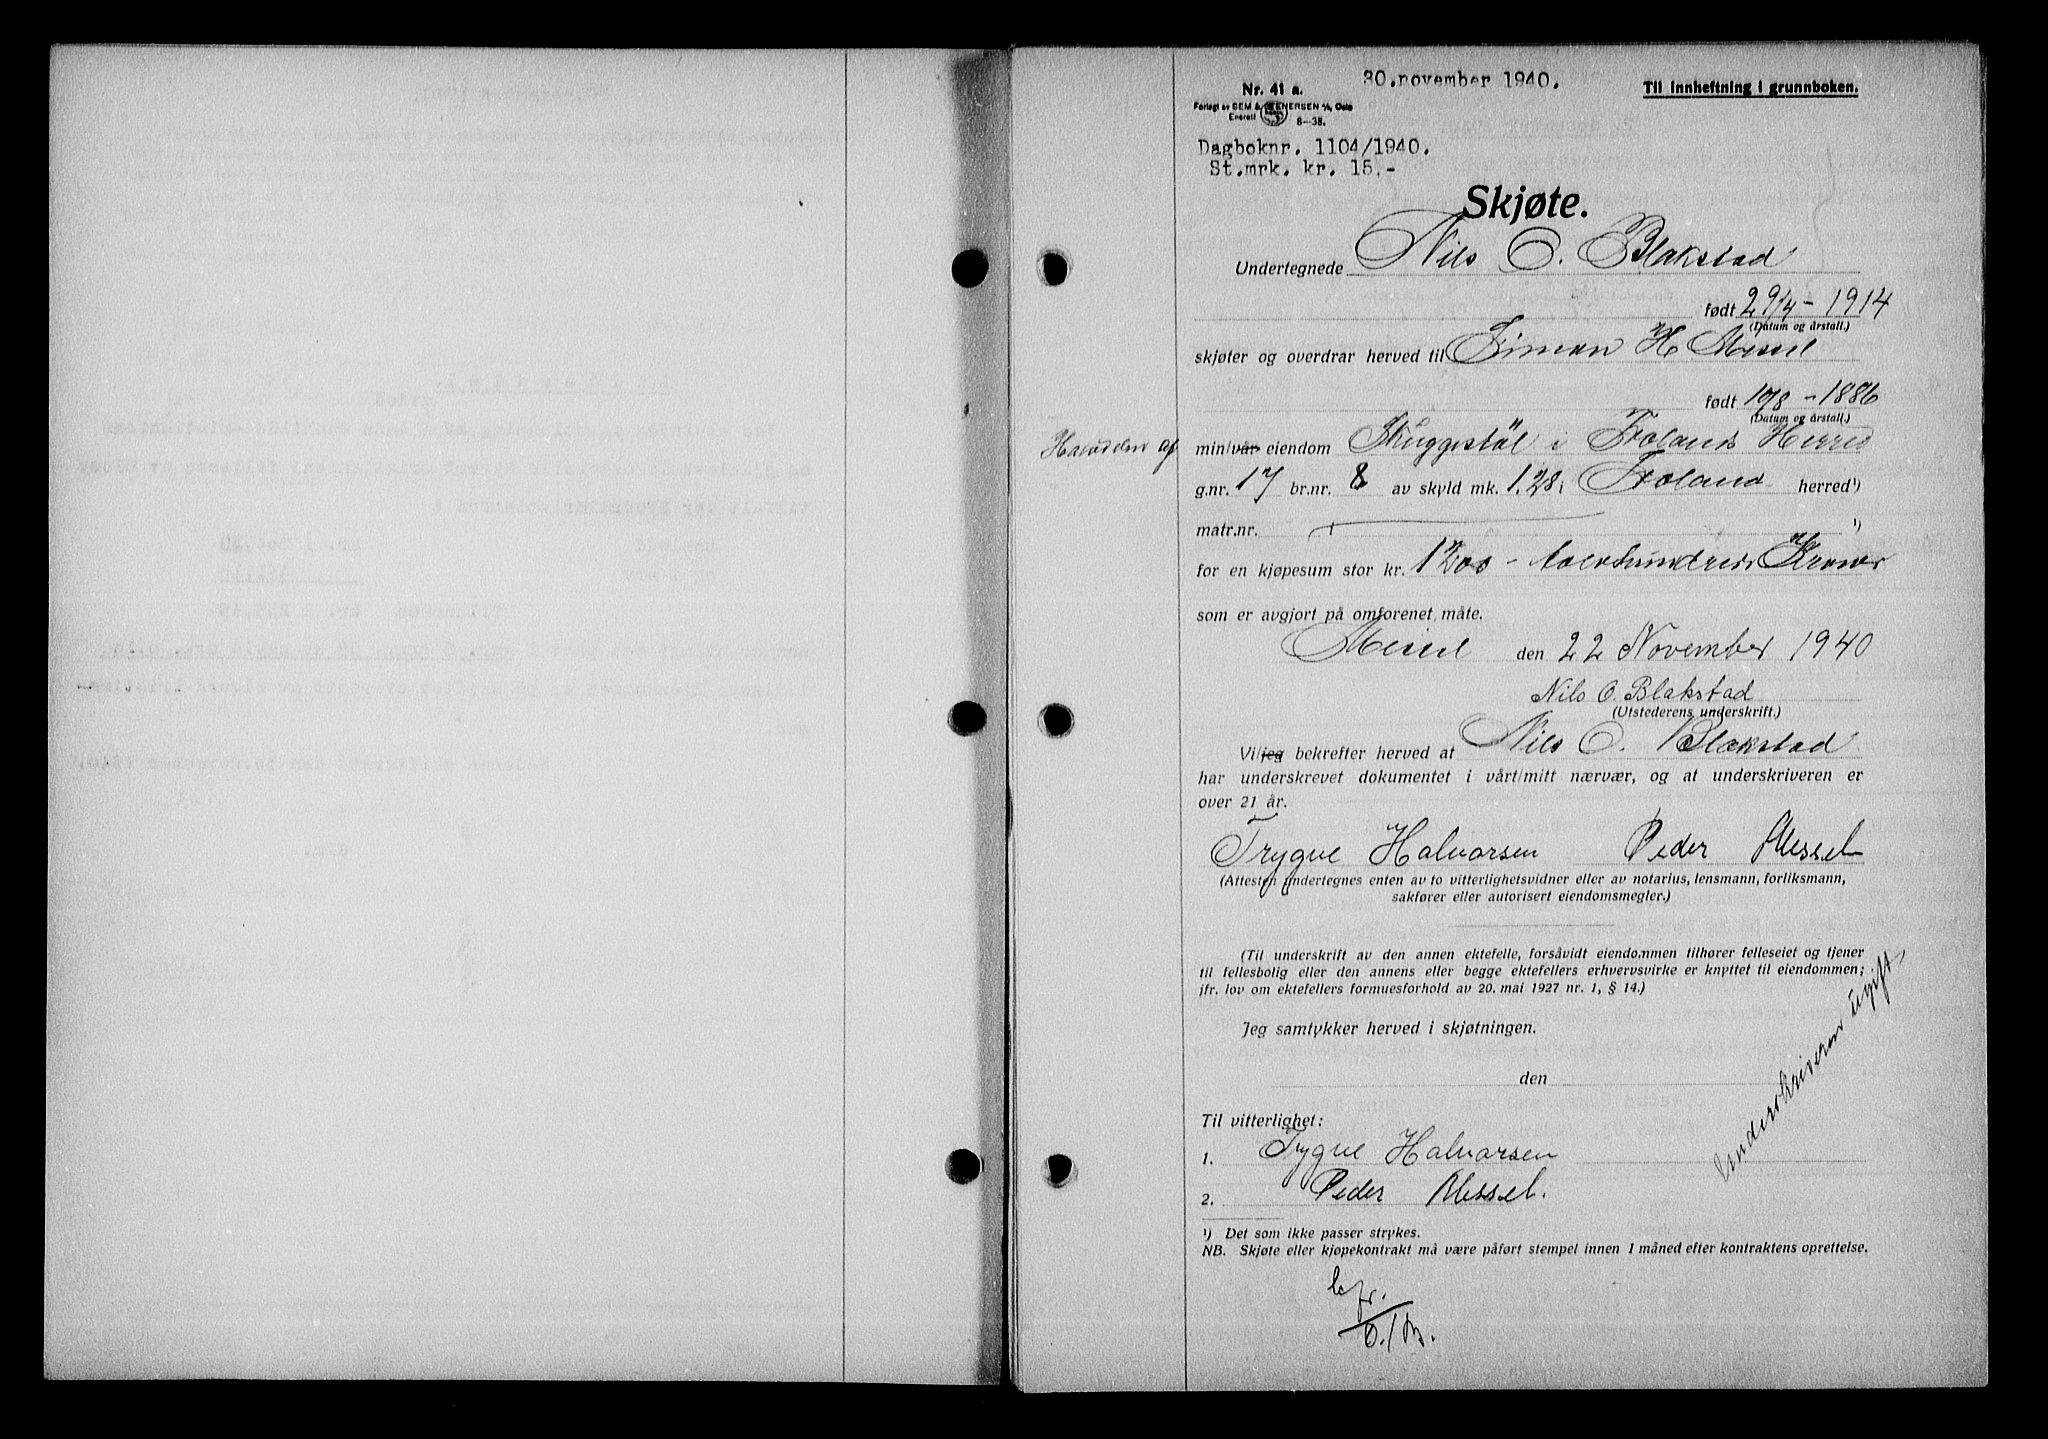 30.november 1940.
Nr. 41 a.
Til innheftning i grunnboken.
Forlagt av SEM & STENERSEN A/S, Oslo
Enerett 8—38.
Dagboknr. 1104/1940.
St.mrk. kr. 15,-
Skjøte.
Undertegnede Nils O. Blakstad
født 29/4 - 1914
(Datum og årstall.)
skjøter og overdrar herved til Simon H Messel
født 17/8 - 1886
(Datum og årstall.)
Halvdelen af min/vår eiendom Skuggestøl i Froland Herred
g.nr. 17 br.nr. 8 av skyld mk. 1.28 i Froland herred¹)
matr.nr. ¹)
for en kjøpesum stor kr. 1200 - tolvhundrede Kroner
som er avgjort på omforenet måte.
Messel den 22 November 1940
Nils O. Blakstad
(Utstederens underskrift.)
Vi/jeg bekrefter herved at Nils O. Blakstad
har underskrevet dokumentet i vårt/mitt nærvær, og at underskriveren er
over 21 år.
Trygve Halvorsen Peder Messel
(Attesten undertegnes enten av to vitterlighetsvidner eller av notarius, lensmann, forliksmann,
sakfører eller autorisert eiendomsmegler.)
(Til underskrift av den annen ektefelle, forsåvidt eiendommen tilhører felleseiet og tjener
til fellesbolig eller den annens eller begge ektefellers erhvervsvirke er knyttet til eiendommen;
jfr. lov om ektefellers formuesforhold av 20. mai 1927 nr. 1, § 14.)
Underskriveren Ugift,
Jeg samtykker herved i skjøtningen.
den
Til vitterlighet:
1. Trygve Halvorsen
2. Peder Messel.
¹) Det som ikke passer strykes.
NB. Skjøte eller kjøpekontrakt må være påført stempel innen 1 måned efter kontraktens oprettelse.